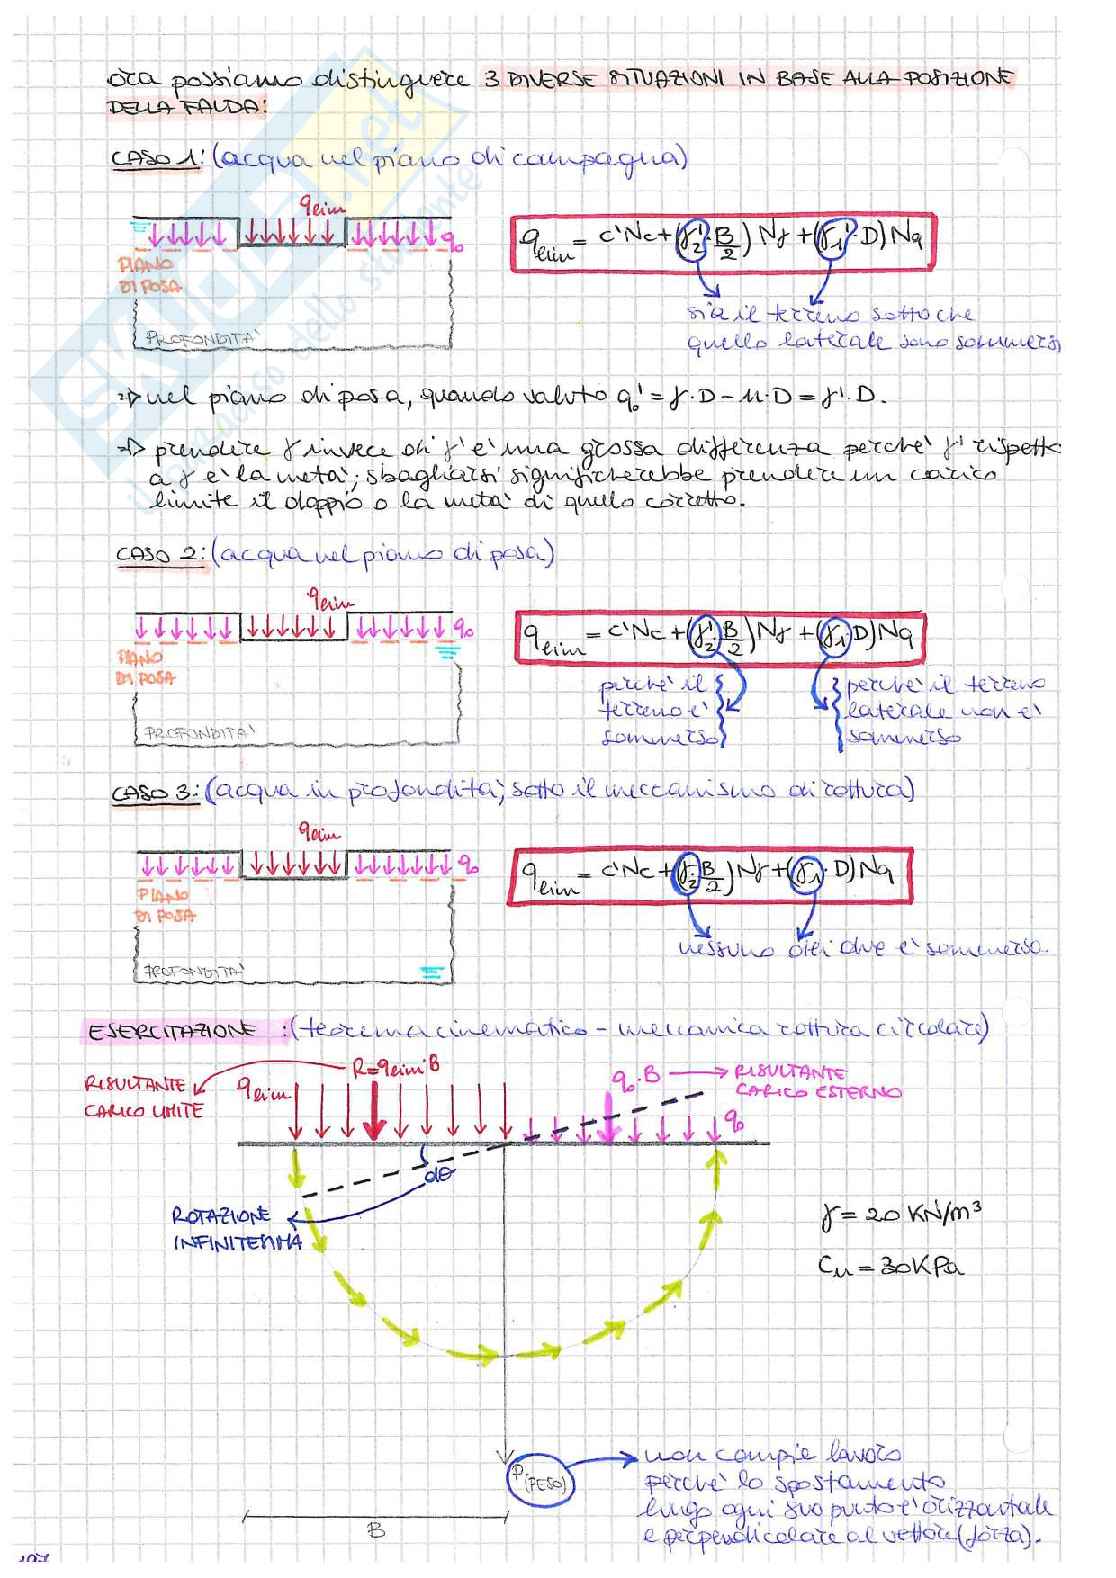 ora possiamo distinguere 3 DIVERSE SITUAZIONI IN BASE ALLA POSIZIONE
DELLA FALDA:
CASO 1: (acqua nel piano di campagna)
qlim
q0
PIANO
DI POSA
PROFONDITA'
qlim = c'Nc + (γ2'·B/2) Nγ + (γ1'·D) Nq
sia il terreno sotto che
quello laterale sono sommersi
=> nel piano di posa, quando valuto q0' = γ·D - u·D = γ'·D.
=> prendere γ invece di γ' è una grossa differenza perché γ' rispetto
a γ è la metà; sbagliarsi significherebbe prendere un carico
limite il doppio o la metà di quello corretto.
CASO 2: (acqua nel piano di posa)
qlim
q0
PIANO
DI POSA
PROFONDITA'
qlim = c'Nc + (γ2'·B/2) Nγ + (γ1·D) Nq
perché il
terreno è
sommerso
perché il terreno
laterale non è
sommerso
CASO 3: (acqua in profondità, sotto il meccanismo di rottura)
qlim
q0
PIANO
DI POSA
PROFONDITA'
qlim = c'Nc + (γ2·B/2) Nγ + (γ1·D) Nq
nessuno dei due è sommerso.
ESERCITAZIONE : (teorema cinematico - meccanica rottura circolare)
RISULTANTE
CARICO LIMITE
qlim
R = qlim·B
q0·B
RISULTANTE
CARICO ESTERNO
q0
dθ
ROTAZIONE
INFINITESIMA
γ = 20 KN/m³
Cu = 30 KPa
P (PESO)
non compie lavoro
perché lo spostamento
lungo ogni suo punto è orizzontale
e perpendicolare al vettore (forza).
B